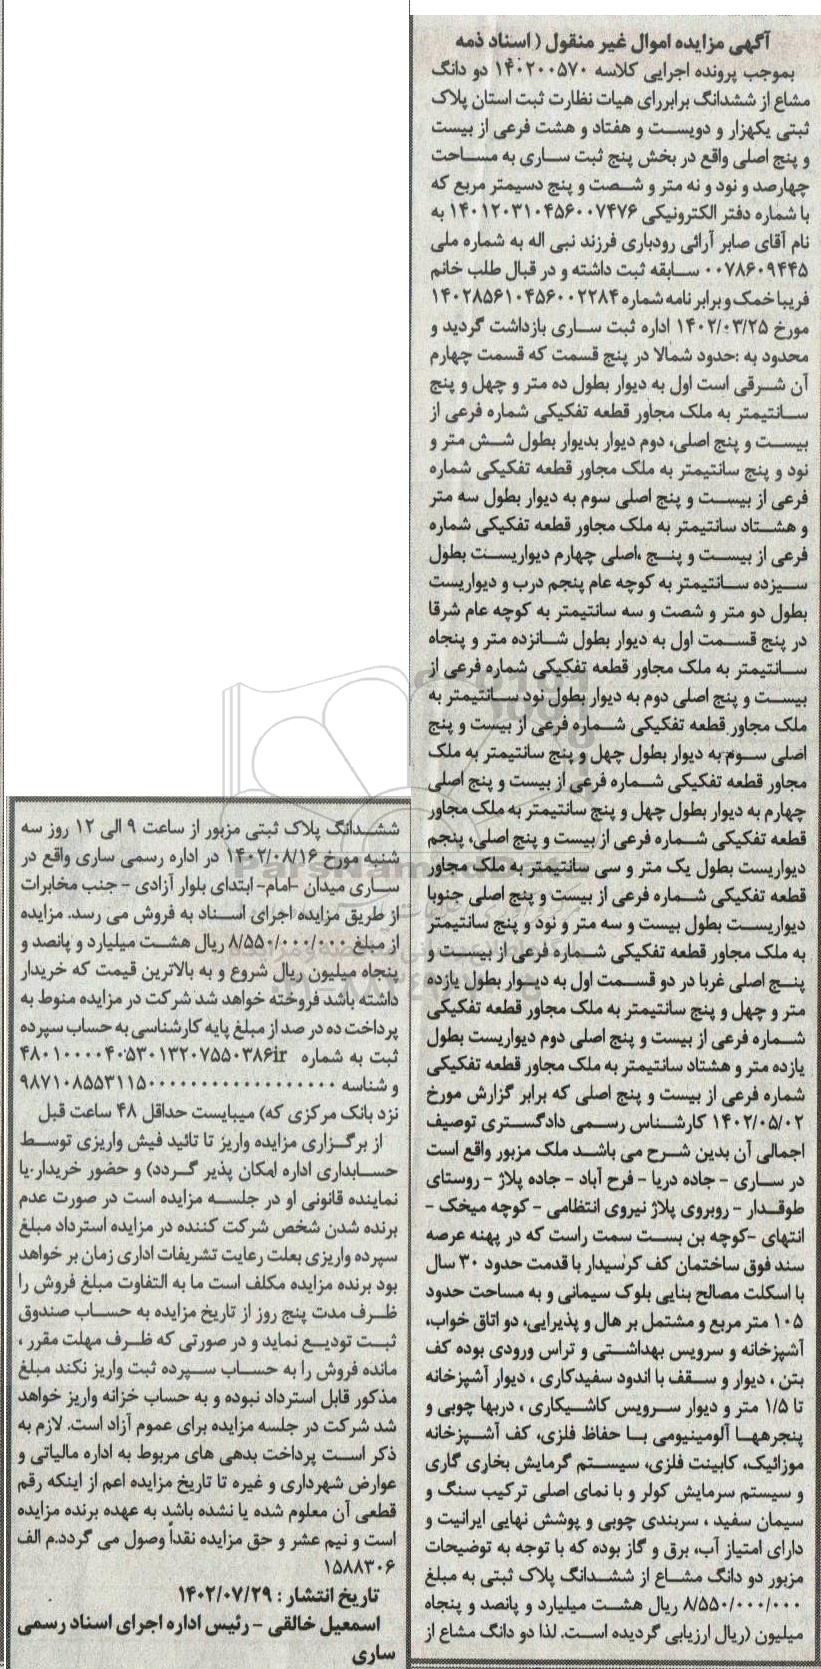 آگهی مزایده اموال غیر منقول ( اسناد ذمه
بموجب پرونده اجرایی کلاسه ۱۴۰۲۰۰۵۷۰ دو دانگ
مشاع از ششدانگ برابررای هیات نظارت ثبت استان پلاک
ثبتی یکهزار و دویست و هفتاد و هشت فرعی از بیست
و پنج اصلی واقع در بخش پنج ثبت ساری به مساحت
چهارصد و نود و نه متر و شصت و پنج دسیمتر مربع که
با شماره دفتر الکترونیکی ۱۴۰۱۲۰۳۱۰۴۵۶۰۰۷۴۷۶ به
نام آقای صابر آرائی رودباری فرزند نبی اله به شماره ملی
۰۰۷۸۶۰۹۴۴۵ سابقه ثبت داشته و در قبال طلب خانم
فریبا خمک و برابر نامه شماره ۱۴۰۲۸۵۶۱۰۴۵۶۰۰۲۲۸۴
مورخ ۱۴۰۲/۰۳/۲۵ اداره ثبت ساری بازداشت گردید و
محدود به :حدود شمالا در پنج قسمت که قسمت چهارم
آن شرقی است اول به دیوار بطول ده متر و چهل و پنج
سانتیمتر به ملک مجاور قطعه تفکیکی شماره فرعی از
بیست و پنج اصلی، دوم دیوار بدیوار بطول شش متر و
نود و پنج سانتیمتر به ملک مجاور قطعه تفکیکی شماره
فرعی از بیست و پنج اصلی سوم به دیوار بطول سه متر
و هشتاد سانتیمتر به ملک مجاور قطعه تفکیکی شماره
فرعی از بیست و پنج ،اصلی چهارم دیواریست بطول
سیزده سانتیمتر به کوچه عام پنجم درب و دیواریست
بطول دو متر و شصت و سه سانتیمتر به کوچه عام شرقا
در پنج قسمت اول به دیوار بطول شانزده متر و پنجاه
سانتیمتر به ملک مجاور قطعه تفکیکی شماره فرعی از
بیست و پنج اصلی دوم به دیوار بطول نود سانتیمتر به
ملک مجاور قطعه تفکیکی شماره فرعی از بیست و پنج
اصلی سوم به دیوار بطول چهل و پنج سانتیمتر به ملک
مجاور قطعه تفکیکی شماره فرعی از بیست و پنج اصلی
چهارم به دیوار بطول چهل و پنج سانتیمتر به ملک مجاور
قطعه تفکیکی شماره فرعی از بیست و پنج اصلی، پنجم
دیواریست بطول یک متر و سی سانتیمتر به ملک مجاور
قطعه تفکیکی شماره فرعی از بیست و پنج اصلی جنوبا
دیواریست بطول بیست و سه متر و نود و پنج سانتیمتر
به ملک مجاور قطعه تفکیکی شماره فرعی از بیست و
پنج اصلی غربا در دو قسمت اول به دیوار بطول یازده
متر و چهل و پنج سانتیمتر به ملک مجاور قطعه تفکیکی
شماره فرعی از بیست و پنج اصلی دوم دیواریست بطول
یازده متر و هشتاد سانتیمتر به ملک مجاور قطعه تفکیکی
شماره فرعی از بیست و پنج اصلی که برابر گزارش مورخ
۱۴۰۲/۰۵/۰۲ کارشناس رسمی دادگستری توصیف
اجمالی آن بدین شرح می باشد ملک مزبور واقع است
در ساری - جاده دریا - فرح آباد - جاده پلاژ - روستای
طوقدار - روبروی پلاژ نیروی انتظامی - کوچه میخک -
انتهای -کوچه بن بست سمت راست که در پهنه عرصه
سند فوق ساختمان کف کرسیدار با قدمت حدود ۳۰ سال
با اسکلت مصالح بنایی بلوک سیمانی و به مساحت حدود
۱۰۵ متر مربع و مشتمل بر هال و پذیرایی، دو اتاق خواب،
آشپزخانه و سرویس بهداشتی و تراس ورودی بوده کف
بتن ، دیوار و سقف با اندود سفیدکاری ، دیوار آشپزخانه
تا ۱/۵ متر و دیوار سرویس کاشیکاری ، دربها چوبی و
پنجرهها آلومینیومی با حفاظ فلزی، کف آشپزخانه
موزائیک، کابینت فلزی، سیستم گرمایش بخاری گازی
و سیستم سرمایش کولر و با نمای اصلی ترکیب سنگ و
سیمان سفید ، سربندی چوبی و پوشش نهایی ایرانیت و
دارای امتیاز آب، برق و گاز بوده که با توجه به توضیحات
مزبور دو دانگ مشاع از ششدانگ پلاک ثبتی به مبلغ
۸/۵۵۰/۰۰۰/۰۰۰ ریال هشت میلیارد و پانصد و پنجاه
میلیون (ریال ارزیابی گردیده است. لذا دو دانگ مشاع از
ششدانگ پلاک ثبتی مزبور از ساعت ۹ الی ۱۲ روز سه
شنبه مورخ ۱۴۰۲/۰۸/۱۶ در اداره رسمی ساری واقع در
ساری میدان -امام- ابتدای بلوار آزادی - جنب مخابرات
از طریق مزایده اجرای اسناد به فروش می رسد. مزایده
از مبلغ ۸/۵۵۰/۰۰۰/۰۰۰ ریال هشت میلیارد و پانصد و
پنجاه میلیون ریال شروع و به بالاترین قیمت که خریدار
داشته باشد فروخته خواهد شد شرکت در مزایده منوط به
پرداخت ده در صد از مبلغ پایه کارشناسی به حساب سپرده
ثبت به شماره ۴۸۰۱۰۰۰۰۴۰۵۳۰۱۳۲۰۷۵۵۰۳۸۶ir
و شناسه
نزد بانک مرکزی که) میبایست حداقل ۴۸ ساعت قبل
از برگزاری مزایده واریز تا تائید فیش واریزی توسط
حسابداری اداره امکان پذیر گردد) و حضور خریدار.یا
نماینده قانونی او در جلسه مزایده است در صورت عدم
برنده شدن شخص شرکت کننده در مزایده استرداد مبلغ
سپرده واریزی بعلت رعایت تشریفات اداری زمان بر خواهد
بود برنده مزایده مکلف است ما به التفاوت مبلغ فروش را
ظرف مدت پنج روز از تاریخ مزایده به حساب صندوق
ثبت تودیع نماید و در صورتی که ظرف مهلت مقرر ،
مانده فروش را به حساب سپرده ثبت واریز نکند مبلغ
مذکور قابل استرداد نبوده و به حساب خزانه واریز خواهد
شد شرکت در جلسه مزایده برای عموم آزاد است. لازم به
ذکر است پرداخت بدهی های مربوط به اداره مالیاتی و
عوارض شهرداری و غیره تا تاریخ مزایده اعم از اینکه رقم
قطعی آن معلوم شده یا نشده باشد به عهده برنده مزایده
است و نیم عشر و حق مزایده نقداً وصول می گردد.م الف
۱۵۸۸۳۰۶
تاریخ انتشار : ۱۴۰۲/۰۷/۲۹
اسمعیل خالقی - رئیس اداره اجرای اسناد رسمی
ساری